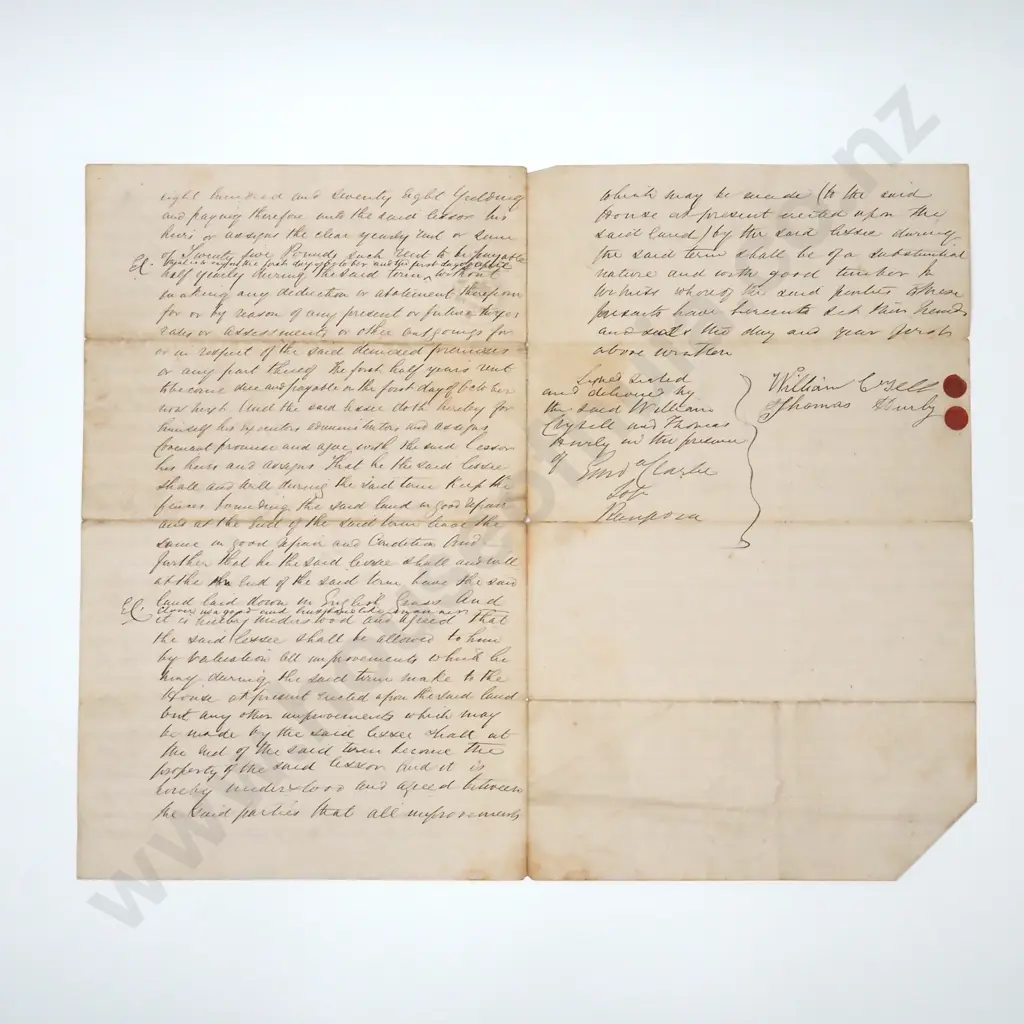 eight hundred and seventy eight Yielding
and paying therefore unto the said lessor his
heirs or assigns the clear yearly rent or sum
of Twenty five Pounds such rent to be payable
EC.
half yearly during the said term without
making any deduction or abatement therefrom
for or by reason of any present or future taxes
rates or assessments or other outgoings for
or in respect of the said demised premises
or any part thereof The first half years rent
to become due and payable on the first day of October
next And the said lessee doth hereby for
himself his executors administrators and assigns
Covenant promise and agree with the said lessor
his heirs and assigns That he the said lessee
shall and will during the said term keep the
fences bounding the said land in good repair
and at the end of the said term leave the
same in good repair and Condition And
further that he the said lessee shall and will
at the end of the said term leave the said
land laid down in English Grass And
EC.
it is hereby understood and agreed that
the said lessee shall be allowed to him
by valuation all improvements which he
may during the said term make to the
House at present erected upon the said land
but any other improvements which may
be made by the said lessee shall at
the end of the said term become the
property of the said lessor and it is
hereby understood and agreed between
the said parties that all improvements
which may be made (to the said
House at present erected upon the
said land) by the said lessee during
the said term shall be of a substantial
nature and with good timber In
witness whereof the said parties to these
presents have hereunto set their hands
and seals the day and year first
above written
Signed sealed
and delivered by
the said William
and Thomas
in the presence
of
Clarke
William
Thomas
www.
nz